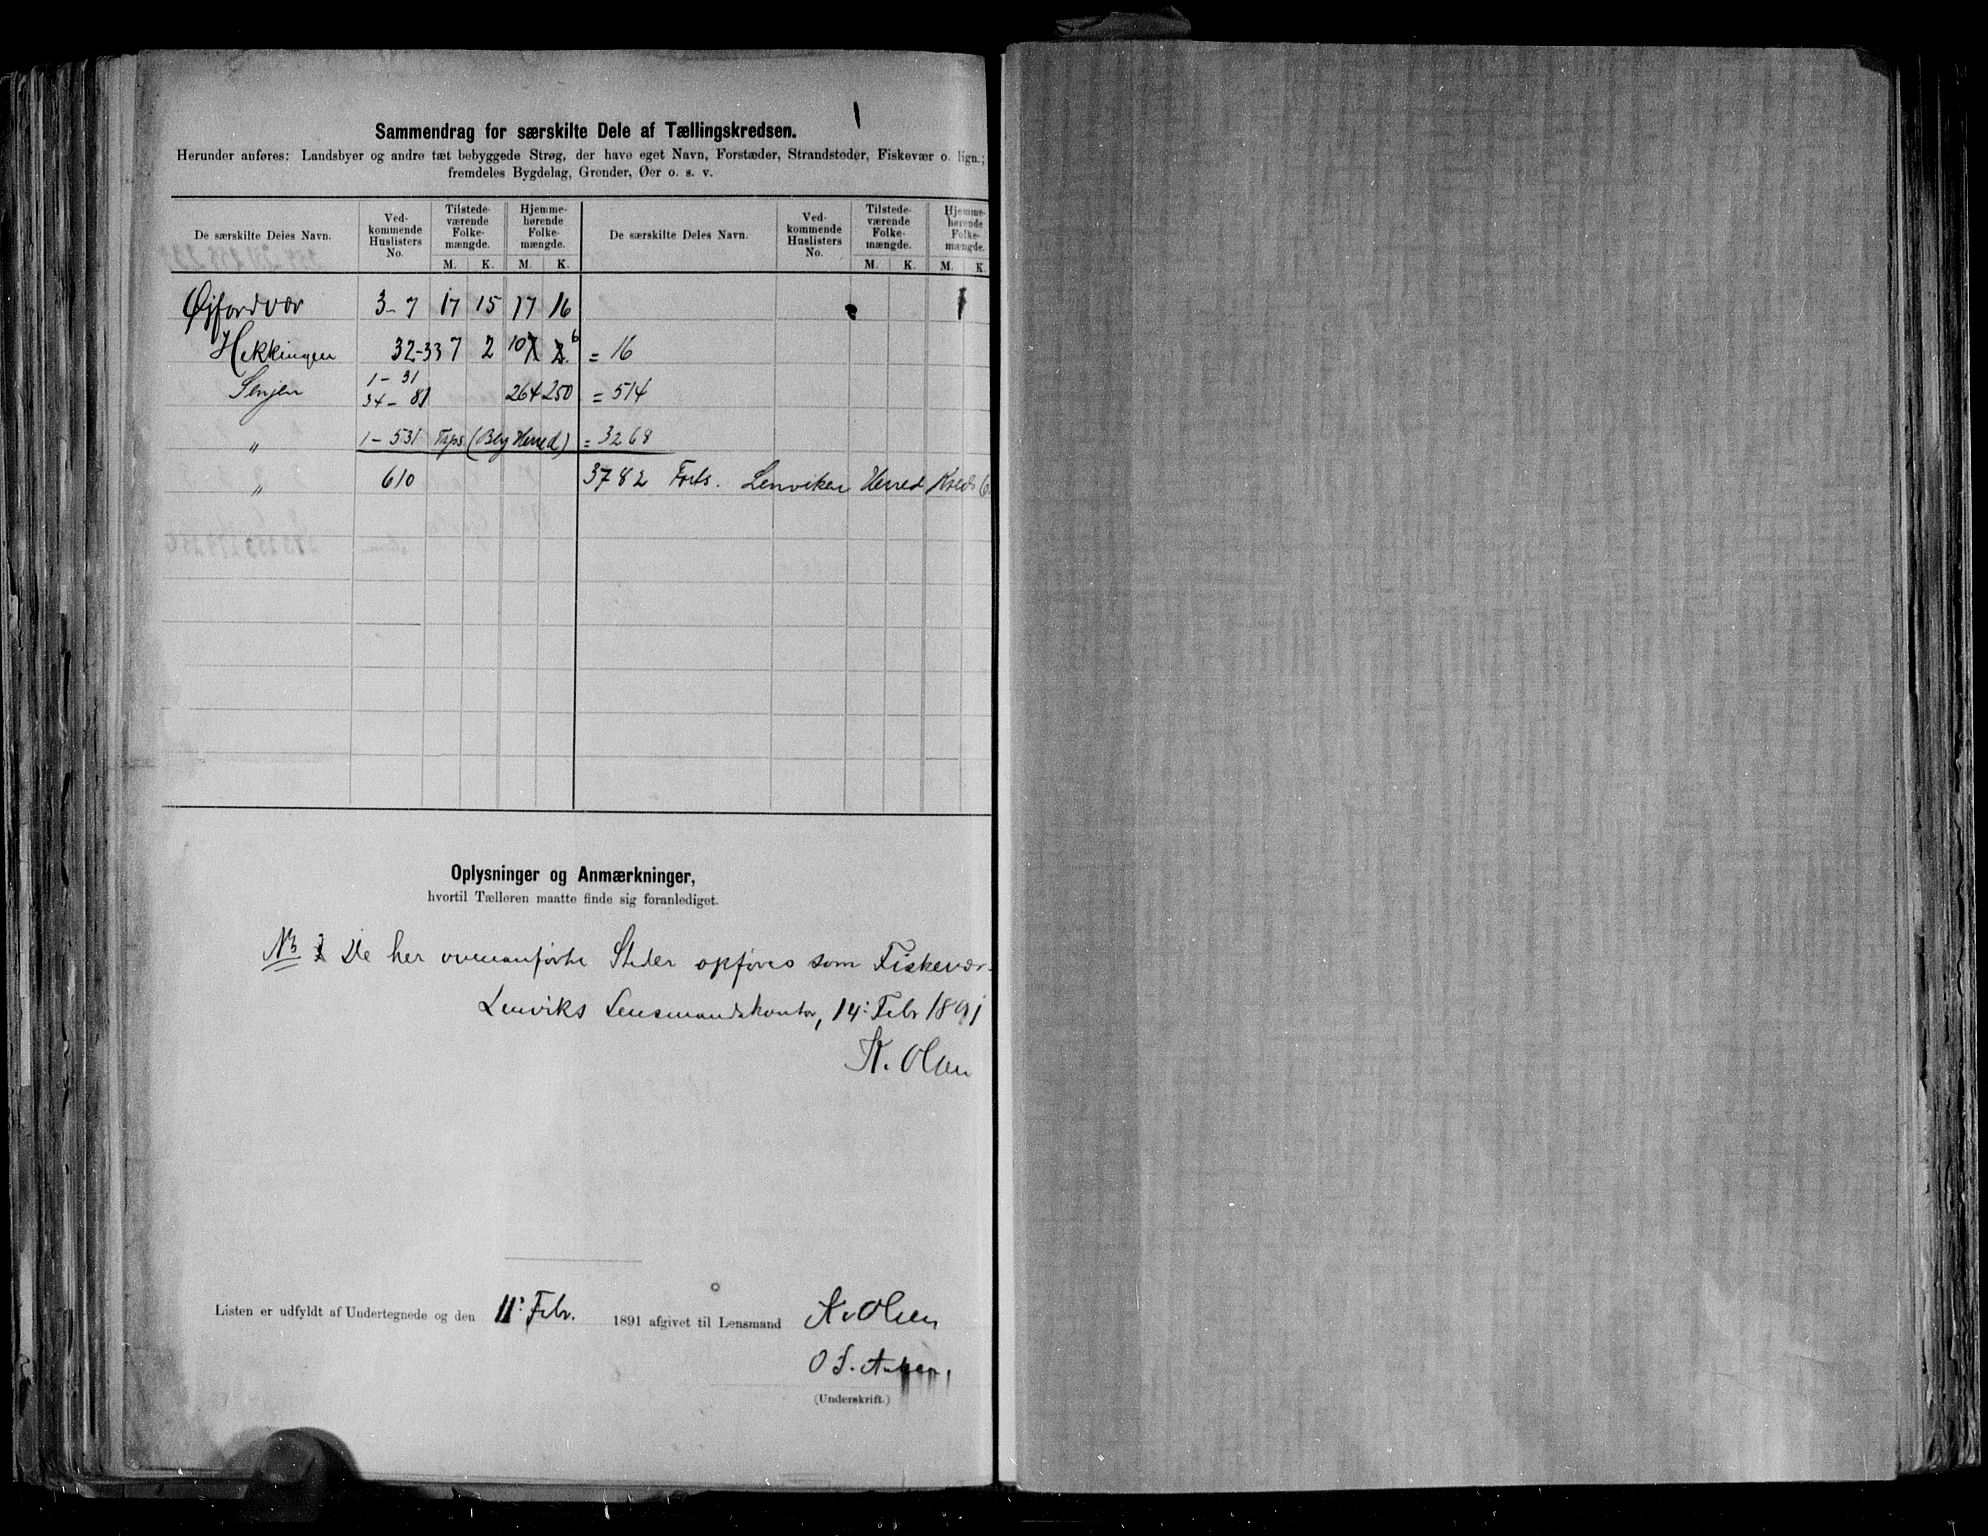 Sammendrag for særskilte Dele af Tællingskredsen.
Herunder anføres: Landsbyer og andre tæt bebyggede Strøg, der have eget Navn, Forstæder, Strandsteder, Fiskevær o. lign.;
fremdeles Bygdelag, Grender, Øer o. s. v.
De særskilte Deles Navn. Ved-kommende Huslisters No. Tilstede-værende Folke-mængde. Hjemme-hørende Folke-mængde. De særskilte Deles Navn. Ved-kommende Huslisters No. Tilstede-værende Folke-mængde. Hjemme-hørende Folke-mængde.
M. K. M. K. M. K. M. K.
Øjfordvær 3-7 17 15 17 16
Hekkingen 32-33 7 2 10 6 = 16
Senjen 1-31 34-81 264 250 = 514
" 1-531 (Berg Herred) = 3268
" 610 3782 Forts. Lenvikens Herred Kreds 6
Oplysninger og Anmærkninger,
hvortil Tælleren maatte finde sig foranlediget.
NB De her ovenanførte Steder opføres som Fiskevær.
Lenviks Lensmandskontor, 14: Febr 1891
K. Olsen
Listen er udfyldt af Undertegnede og den 11: Febr. 1891 afgivet til Lensmand K. Olsen
(Underskrift.)